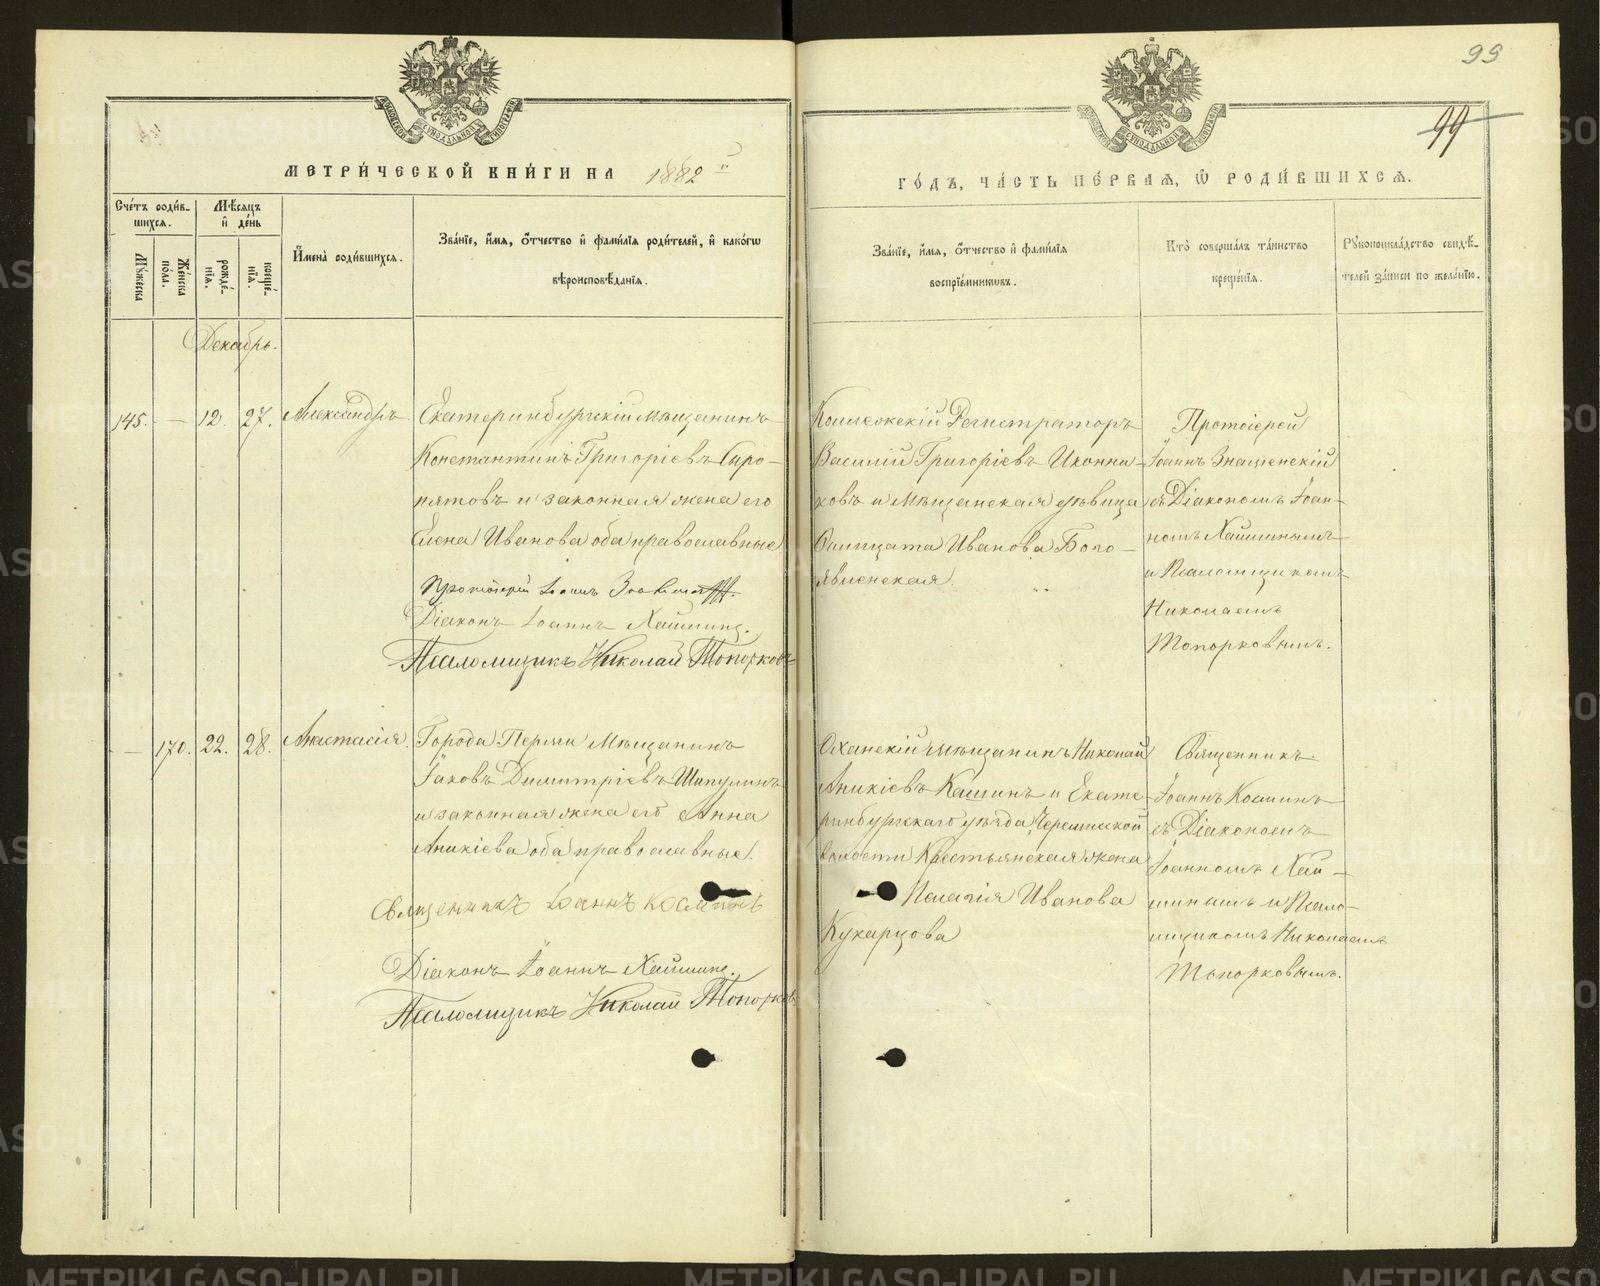 99
99
МЕТРИ́ЧЕСКОЙ КНИ́ГИ НА 1882 й
ГО́ДЪ, ЧА́СТЬ ПЕ́РВАѦ, Ѿ РОДИ́ВШИХСѦ.
Сче́тъ роди́в-
шихсѧ.
Мѣ́сяцъ
и҆ де́нь
Мꙋ́жеска
Же́нска
по́ла.
рожде́-
нїѧ.
креще́-
нїѧ.
И҆мена̀ роди́вшихсѧ.
Зва́нїе, и҆́мѧ, ѻ҆́тчество и҆ фамѝлїѧ роди́телей, и҆ како́гѡ
вѣроисповѣ́данїѧ.
Зва́нїе, и҆́мѧ, ѻ҆́тчество и҆ фамѝлїѧ
воспрїе́мникѡвъ.
Кто̀ соверша́лъ та́инство
креще́нїѧ.
Рꙋкоприкла́дство свидѣ́-
телей за́писи по жела́нїю.
Декабрь.
145. — 12. 27. Александръ
Екатеринбургскій мѣщанинъ
Константинъ Григоріевъ Сыро-
пятовъ и законная жена его
Елена Иванова оба православные
Протоіерей Іоаннъ Знаменскій.
Діаконъ Іоаннъ Хаминъ.
Псаломщикъ Николай Топорковъ
Коллежскій Регистраторъ
Василій Григоріевъ Иконни-
ковъ и Мѣщанская дѣвица
Олимпіата Иванова Бого-
явленская.
Протоіерей
Іоаннъ Знаменскій
съ Діакономъ Іоан-
номъ
и Псаломщикомъ
Николаемъ
Топорковымъ.
— 170. 22. 28. Анастасія.
Города Перми Мѣщанинъ
Іаковъ Димитріевъ Шипулинъ
и законная жена его Анна
Аникіева оба православные.
Священникъ Іоаннъ Косминъ
Діаконъ Іоаннъ
Псаломщикъ Николай Топорковъ
Оханскій мѣщанинъ Николай
Аникіевъ Кашинъ и Екате-
ринбургскаго уѣзда Черемисской
волости Крестьянская жена
Пелагія Иванова
Кукарцова
Священникъ
Іоаннъ Косминъ
съ Діакономъ
Іоанномъ
и Псало-
мщикомъ Николаемъ
Топорковымъ.
METRIKI.GASO-URAL.RU